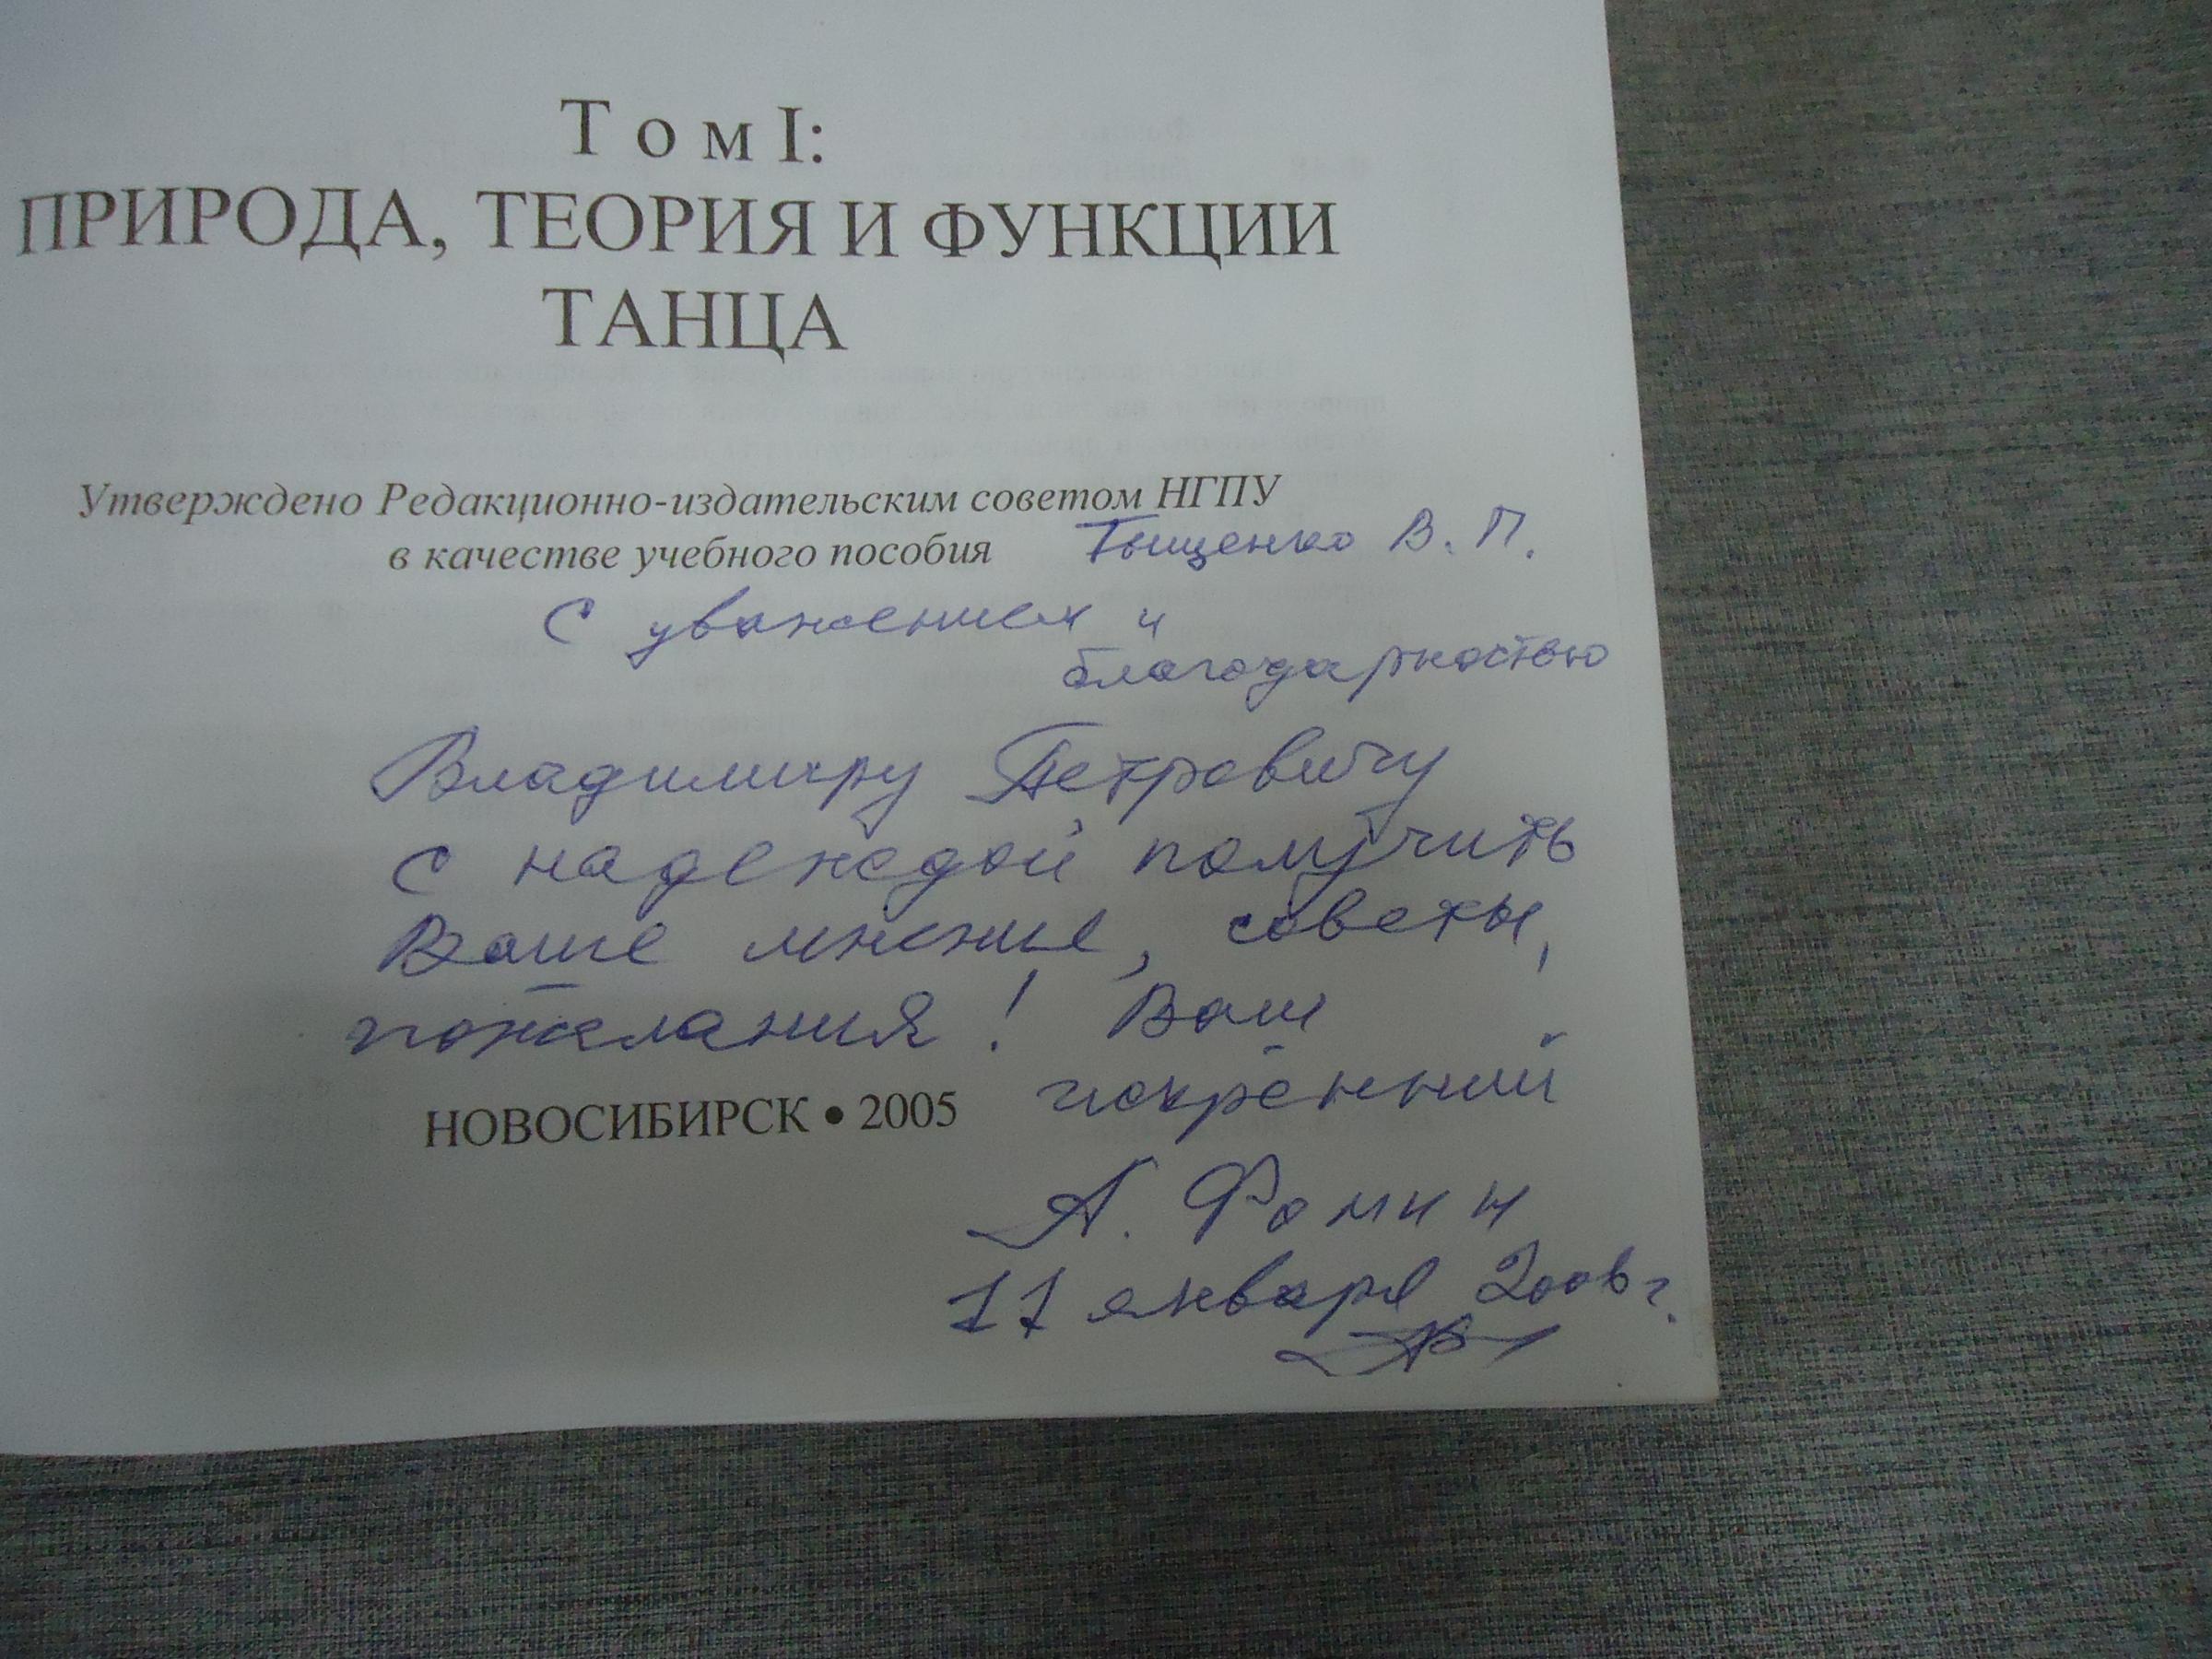 Том I:
ПРИРОДА, ТЕОРИЯ И ФУНКЦИИ
ТАНЦА
Утверждено Редакционно-издательским советом НГПУ
в качестве учебного пособия
Тыщенко В. П.
С уважением и
благодарностью
Владимиру Петровичу
с надеждой получить
Ваше мнение, советы,
пожелания! Ваш
искренний
НОВОСИБИРСК • 2005
А. Фомин
11 января 2006 г.